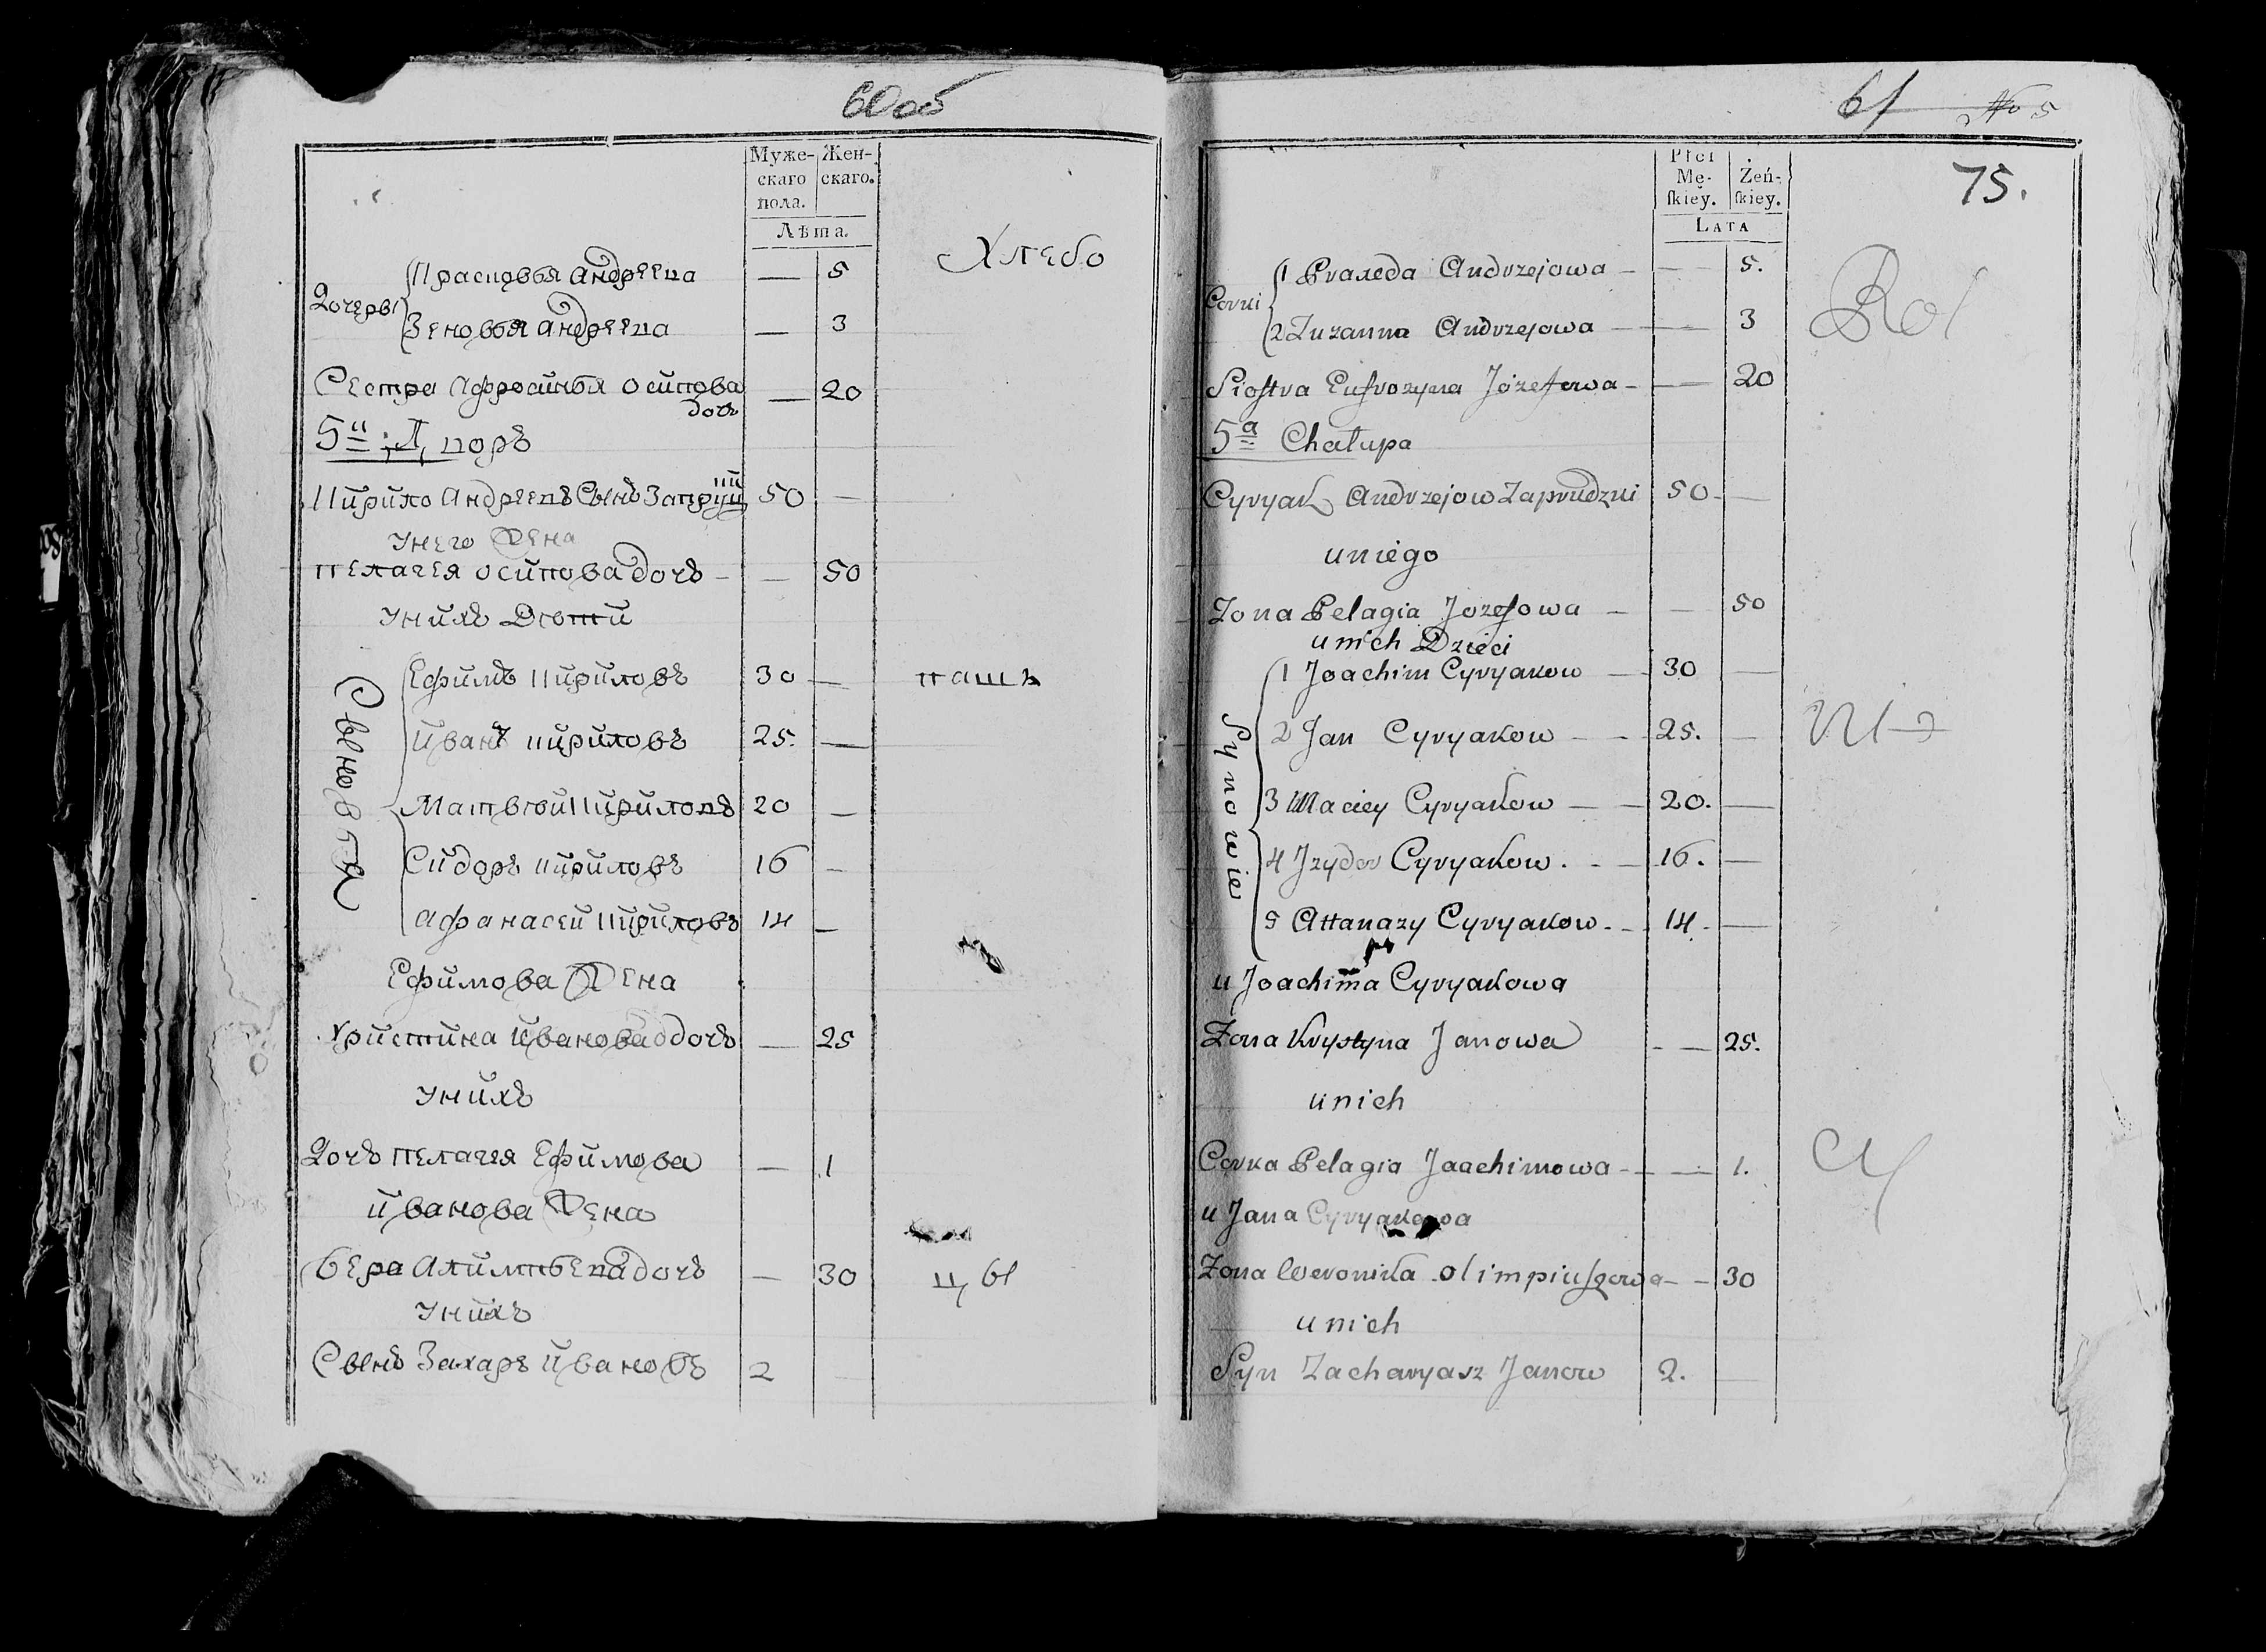 60об
Муже-
скаго
пола.
Жен-
скаго.
Лѣта.
Хлебо
Дочеры
Прасковья Андреева — 5
Зеновья Андреева — 3
Сестра Афросинья Осипова — 20
дочь
5й Двор
Кирило Андреевъ Сынъ Запруд 50 —
у него Жена
Пелагея Осипова дочь — — 50
у нихъ Дѣти
Сыновья
Ефимъ Кириловъ 30 —
пашъ
Иванъ Кириловъ 25. —
Матвей Кириловъ 20 —
Сидоръ Кириловъ 16 —
Афанасей Кириловъ 14 —
Ефимова Жена
Христина Иванова дочь — 25
у нихъ
Дочь Пелагея Ефимова — 1
Иванова Жена
Вера Алимпьева дочь — 30
цы
у нихъ
Сынъ Захаръ Ивановъ 2
61 № 5
75.
Płci
Mę-
ſkiey.
Żeń-
ſkiey.
LATA
Rol
Corki
1 Praxeda Andrzejowa — — 5.
2 Zuzanna Andrzejowa — — 3
Sioſtra Eufrozyna Józefowa — — 20
5a Chałupa
Cyryak Andrzejow Zaprudzki 50. —
u niego
Zona Pelagia Jozefowa — — 50
u nich Dzieci
Synowie
1 Joachim Cyryakow — 30 —
2 Jan Cyryakow — — 25. —
ni
3 Maciey Cyryakow — — 20. —
4 Jzydor Cyryakow. — — 16. —
5 Attanazy Cyryakow. — 14. —
u Joachima Cyryakowa
Zona Krystyna Janowa — — 25.
u nich
Corka Pelagia Joachimowa — — 1.
cy
u Jana Cyryakowa
Zona Weronika Olimpiuſzowa — — 30
u nich
Syn Zacharyasz Janow 2. —